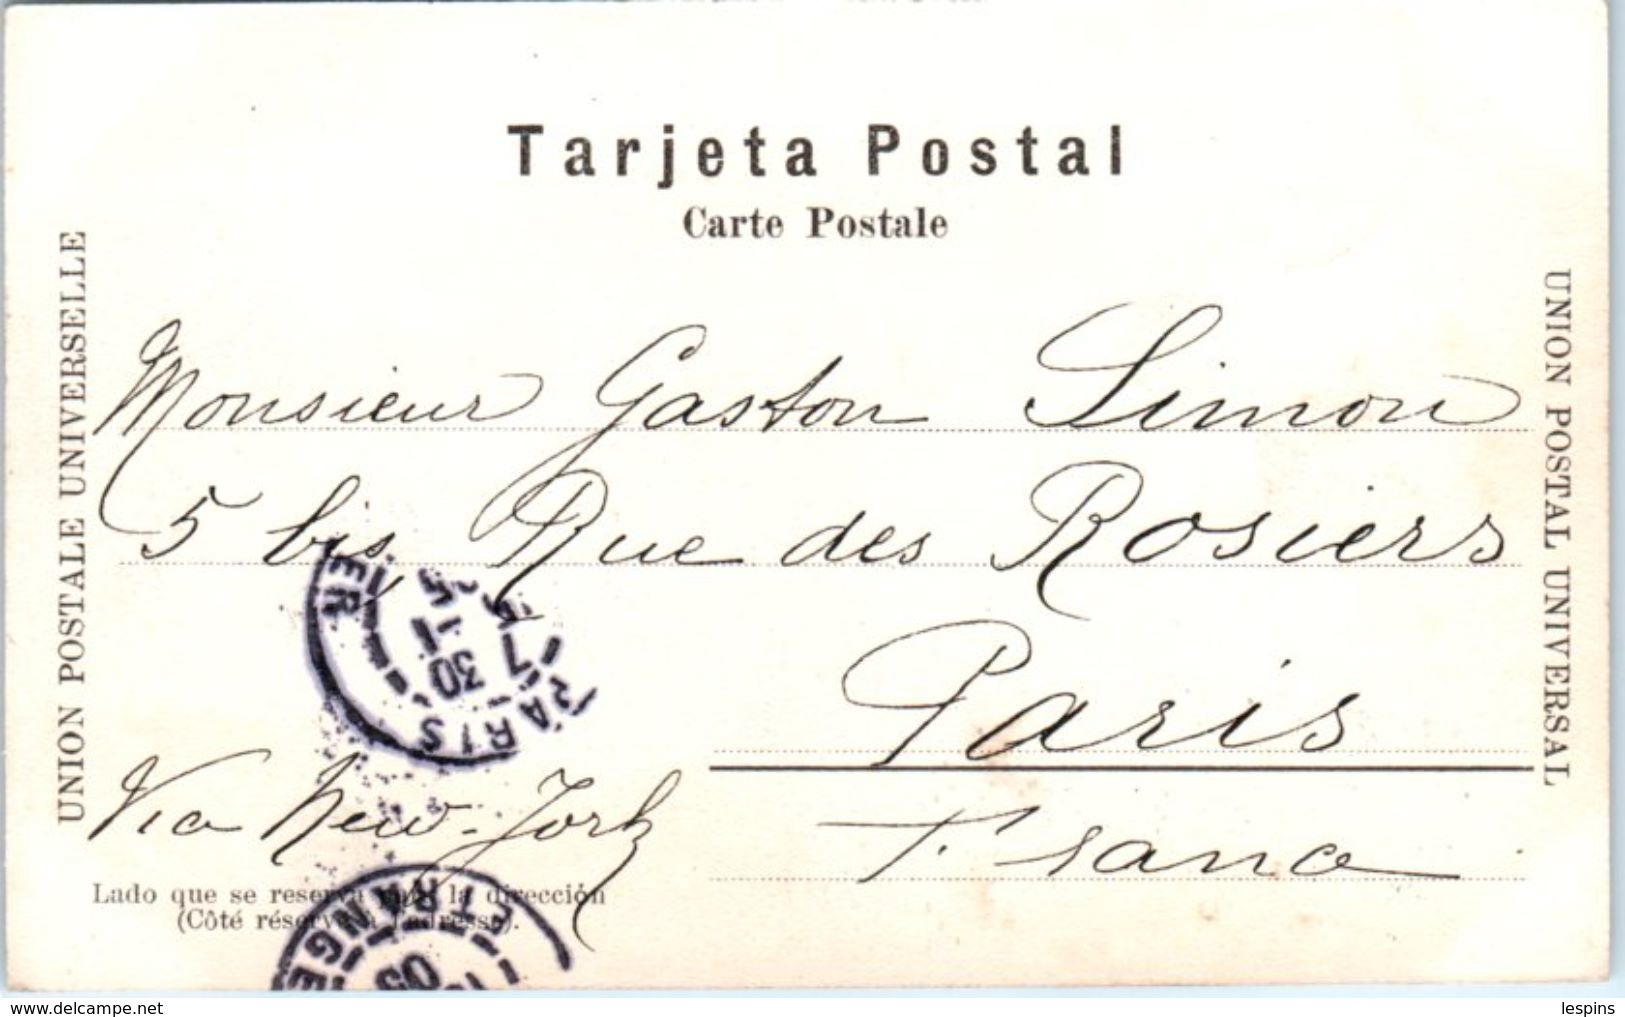 Tarjeta Postal
Carte Postale
UNION POSTALE UNIVERSELLE
UNION POSTAL UNIVERSAL
Monsieur Gaston Simon
5 bis, Rue des Rosiers
Paris
France
Via New-York
Lado que se reserva para la dirección
(Côté réservé à l'adresse).
PARIS
7
30
05
ETRANGE
05
delcampe.net
lespins